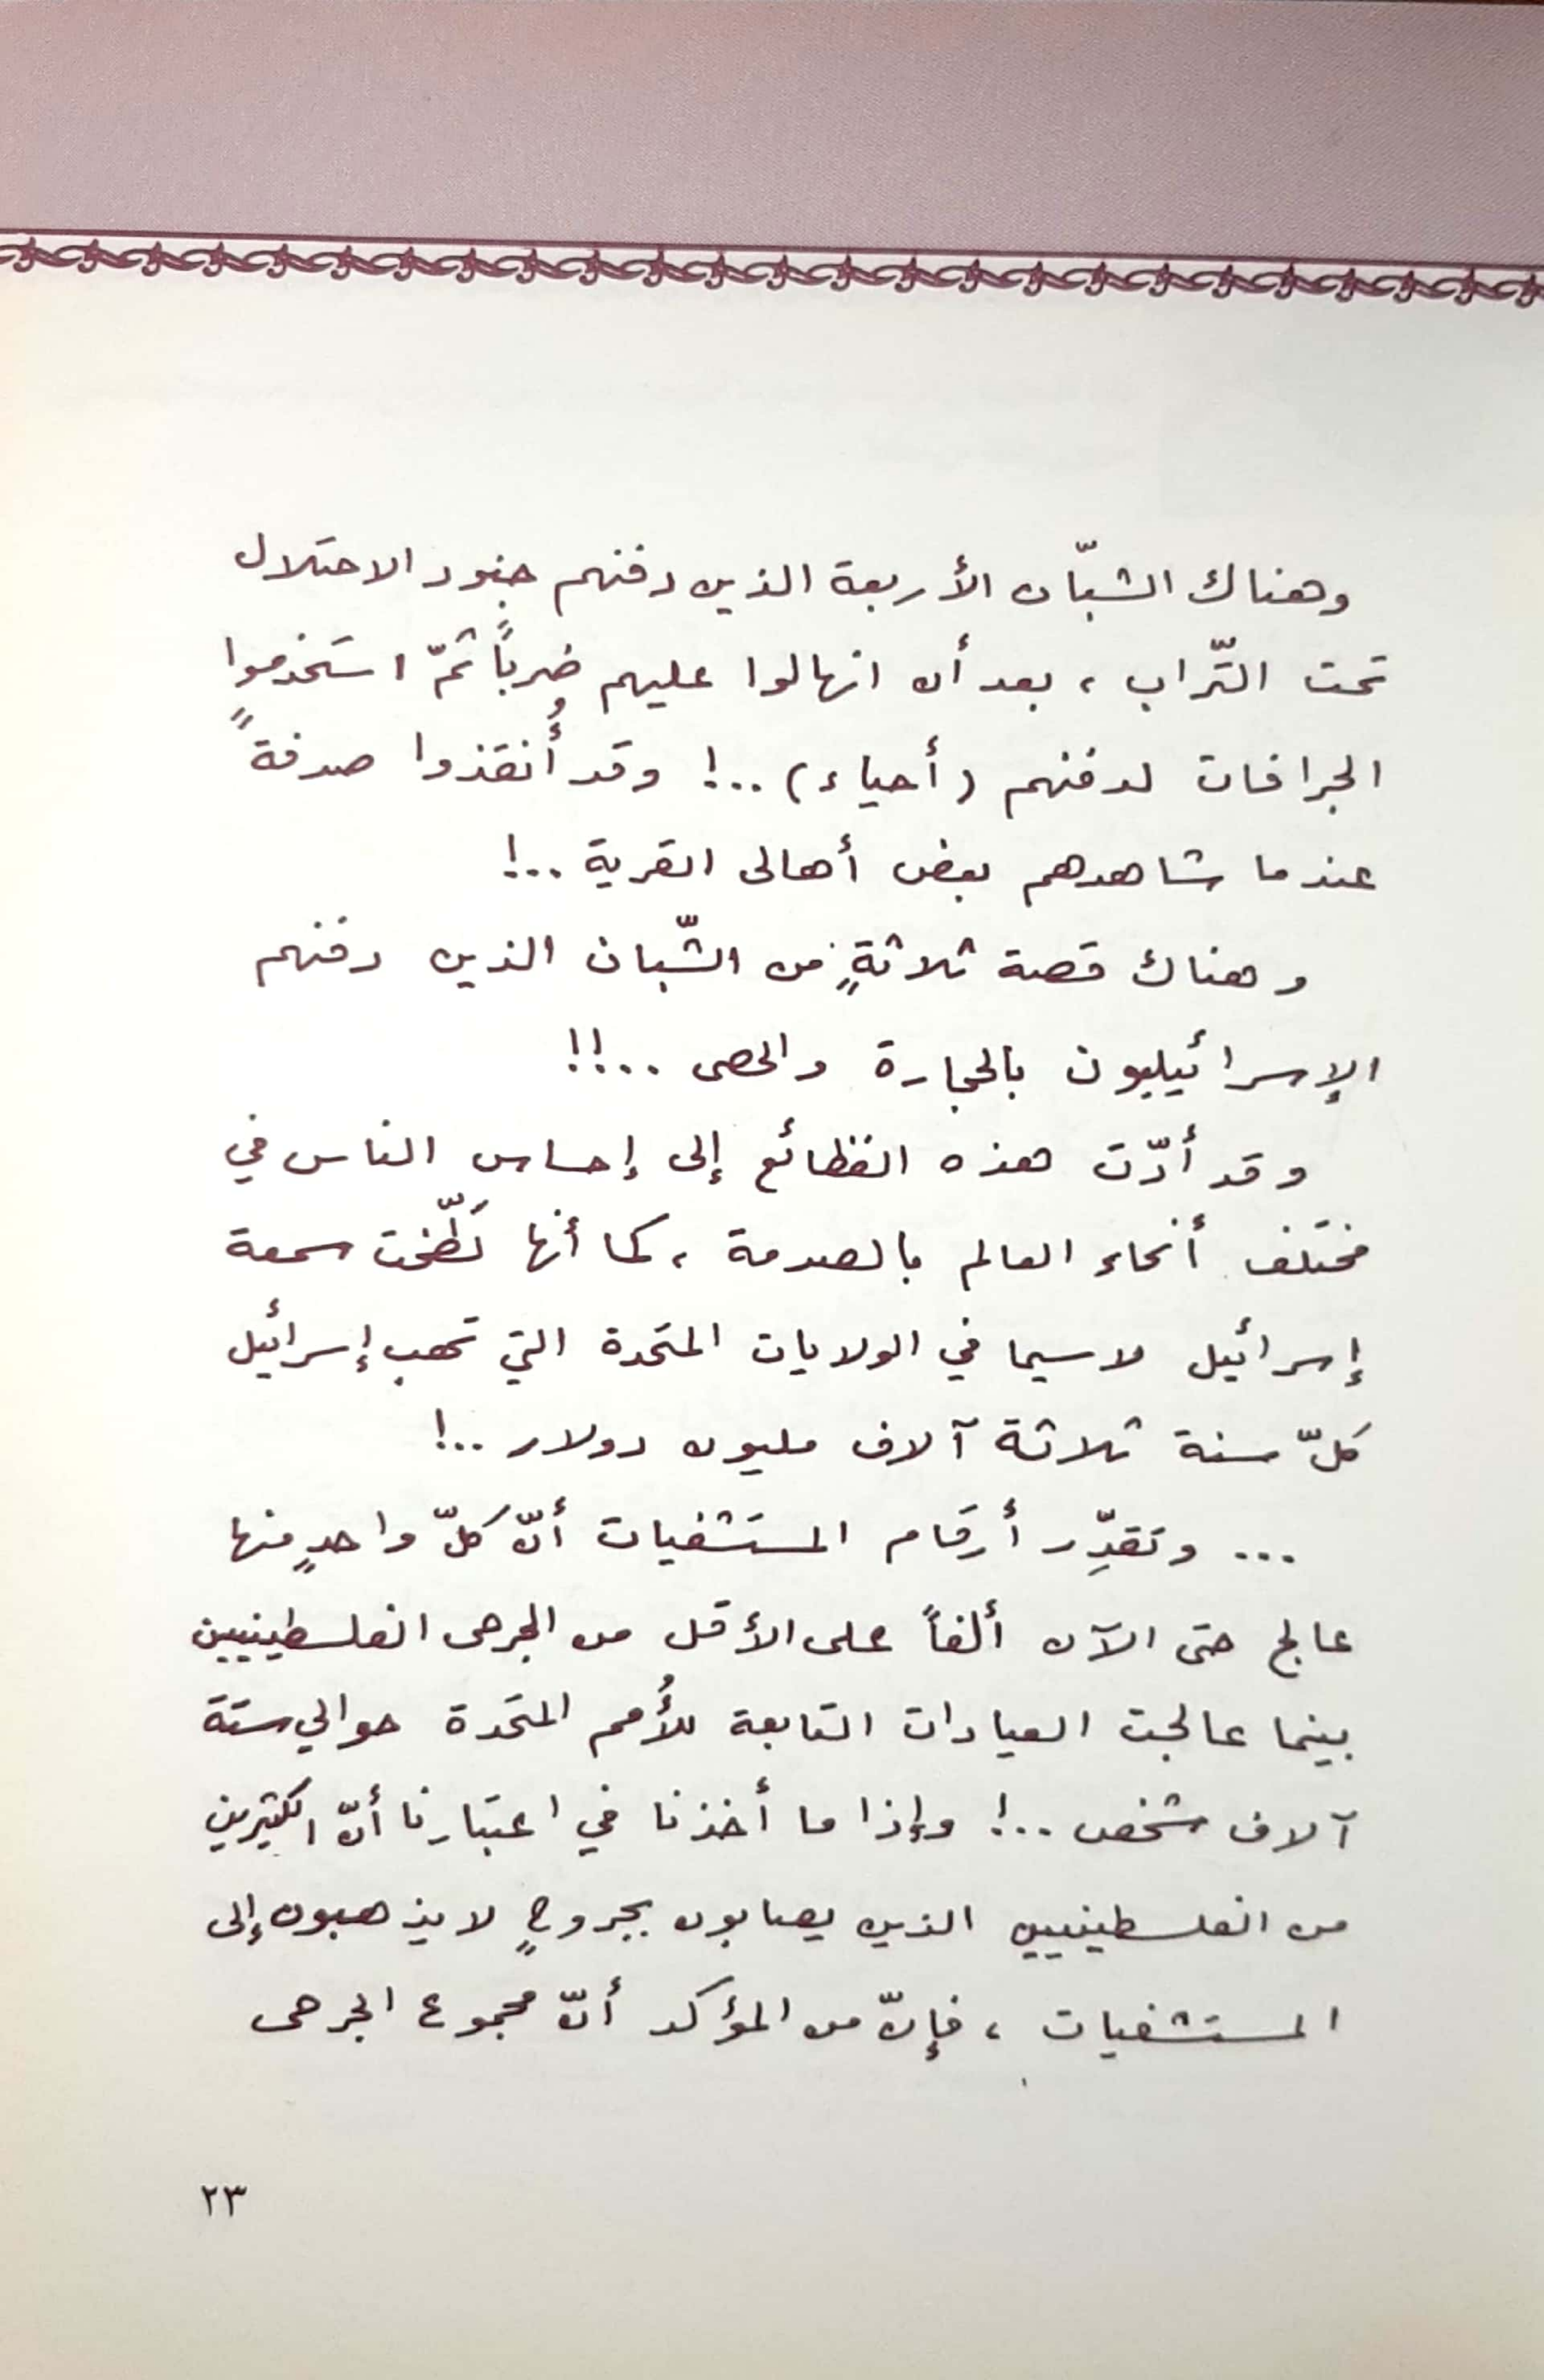 وهناك الشبّان الأربعة الذين دفنهم جنود الاحتلال
تحت التّراب ، بعد أن انهالوا عليهم ضرباً ثمّ استخدموا
الجرافات لدفنهم (أحياء) ..! وقد أُنقذوا صدفةً
عندما شاهدهم بعض أهالى القرية ..!
وهناك قصة ثلاثةٍ من الشّبان الذين دفنهم
الإسرائيليون بالحجارة والحصى ..!!
وقد أدّت هذه الفظائع إلى إحساس الناس في
مختلف أنحاء العالم بالصدمة ، كما أنها لَطّخت سمعة
إسرائيل لاسيما في الولايات المتحدة التي تهب إسرائيل
كلّ سنة ثلاثة آلاف مليون دولار ..!
... وتقدِّر أرقام المستشفيات أنّ كلّ واحدٍ منها
عالج حتى الآن ألفاً على الأقل من الجرحى الفلسطينيين
بينما عالجت العيادات التابعة للأُمم المتحدة حوالي ستة
آلاف شخص ..! وإذا ما أخذنا في اعتبارنا أنّ الكثيرين
من الفلسطينيين الذين يصابون بجروحٍ لا يذهبون إلى
المستشفيات ، فإنّ من المؤكد أنّ مجموع الجرحى
٢٣